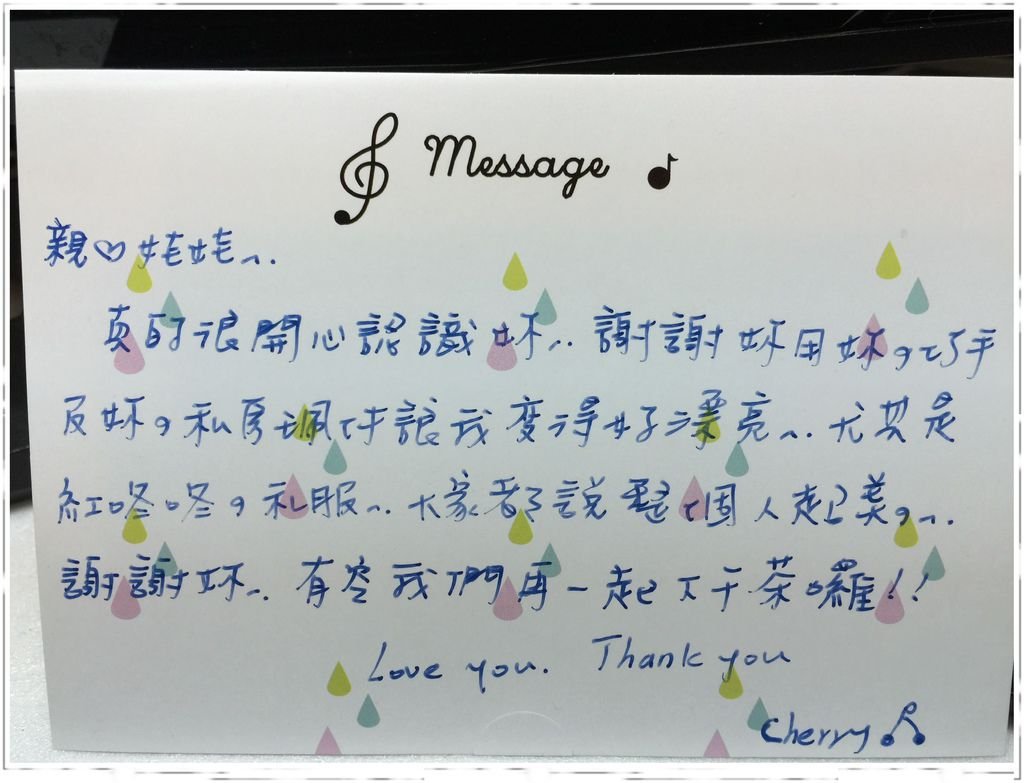 Message
親♡娃娃~..
真的很開心認識妳~.. 謝謝妳用妳ㄉ巧手
及妳ㄉ私房珮件讓我変得好漂亮~.. 尤其是
紅咚咚ㄉ礼服~.. 大家都說整個人超美ㄉ~..
謝謝妳~.. 有空我們再一起下午茶囉!!
Love you. Thank you
Cherry